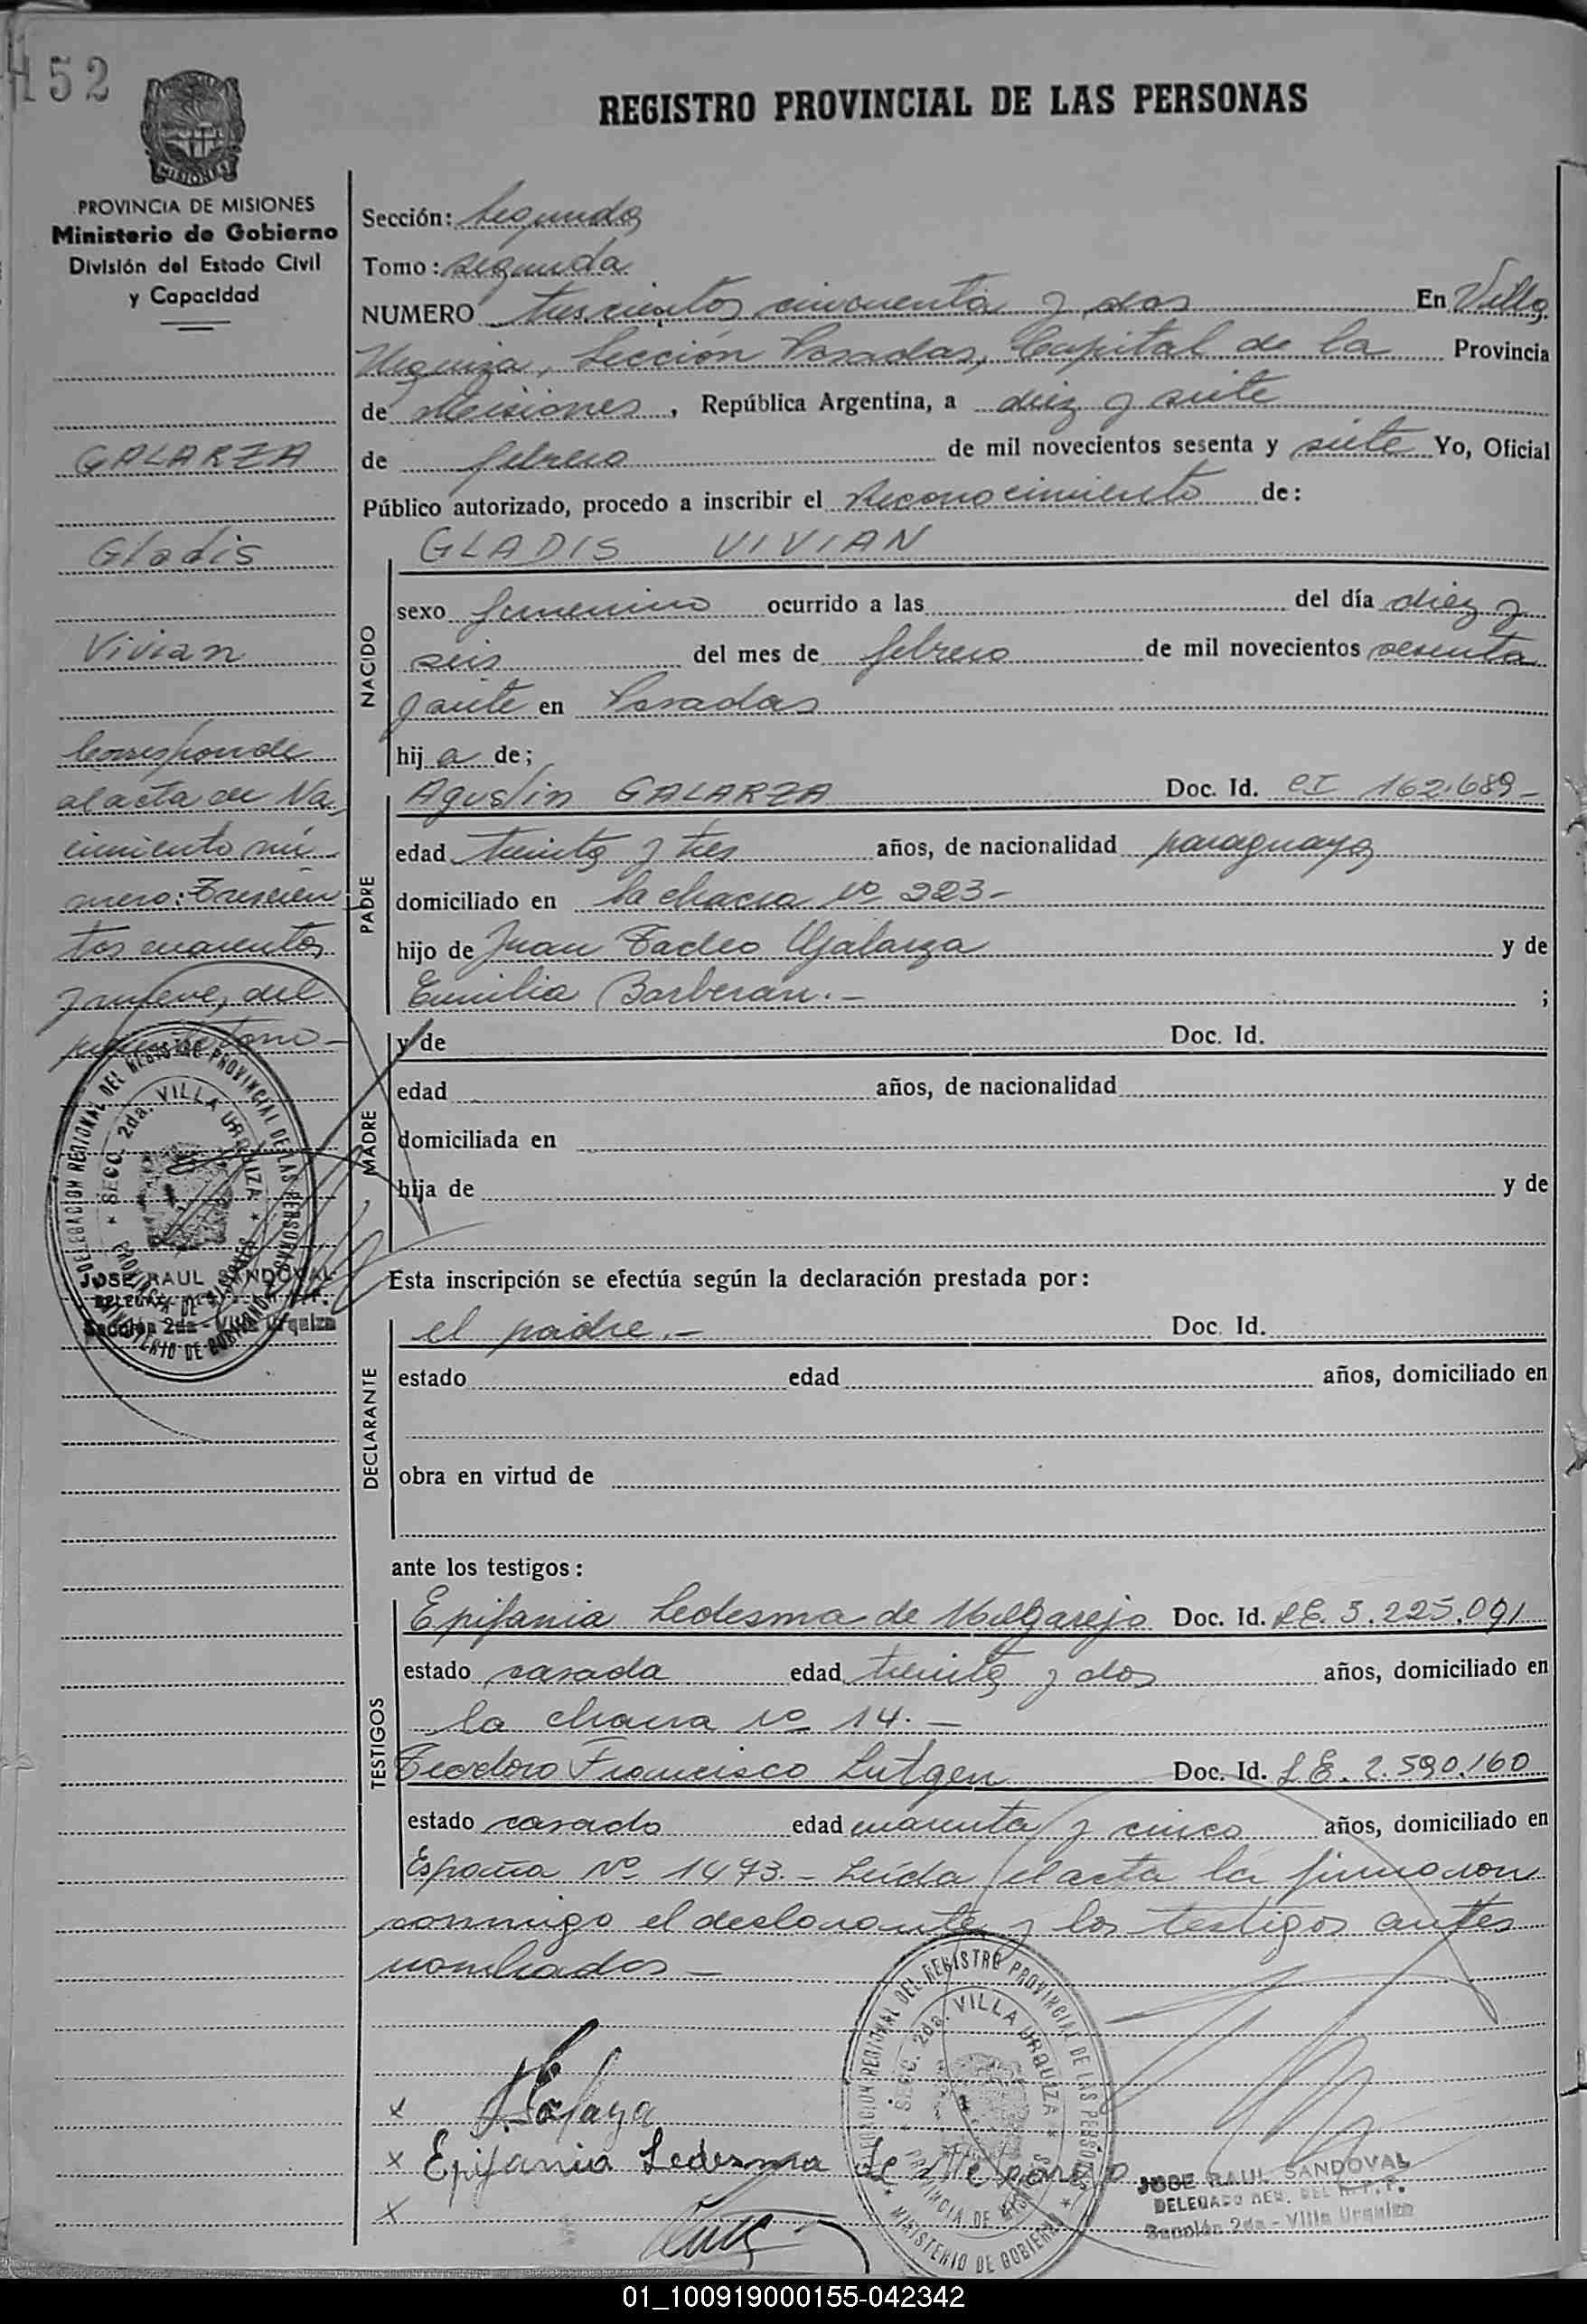 152
REGISTRO PROVINCIAL DE LAS PERSONAS
MISIONES
PROVINCIA DE MISIONES
Ministerio de Gobierno
División del Estado Civil
y Capacidad
GALARZA
Gladis
Vivian
Corresponde
al acta de Na
cimiento nú
mero: Trescien
tos cuarenta
y nueve, del
tomo
DELEGACION REGIONAL DEL REGISTRO PROVINCIAL DE LAS PERSONAS
SECC. 2da. VILLA URQUIZA
PROVINCIA DE MISIONES
MINISTERIO DE GOBIERNO
JOSE RAUL SANDOVAL
Sección 2da - Villa Urquiza
Sección: Segunda
Tomo: segunda
NUMERO trescientos cincuenta y dos En Villa
Urquiza, Sección Posadas, Capital de la Provincia
de Misiones, República Argentina, a diez y siete
de febrero de mil novecientos sesenta y siete Yo, Oficial
Público autorizado, procedo a inscribir el Reconocimiento de:
GLADIS VIVIAN
NACIDO
sexo femenino ocurrido a las del día diez y
seis del mes de febrero de mil novecientos sesenta
y siete en Posadas
hija de;
PADRE
Agustin GALARZA Doc. Id. CI 162.689-
edad treinta y tres años, de nacionalidad paraguaya
domiciliado en la chacra Nº 223-
hijo de Juan Tadeo Galarza y de
Emilia Barberan.- ;
MADRE
y de Doc. Id.
edad años, de nacionalidad
domiciliada en
hija de y de
Esta inscripción se efectúa según la declaración prestada por:
DECLARANTE
el padre.- Doc. Id.
estado edad años, domiciliado en
obra en virtud de
ante los testigos:
TESTIGOS
Epifania Ledesma de Melgarejo Doc. Id. LE. 3.225.091
estado casada edad treinta y dos años, domiciliado en
la chacra Nº 14.-
Teodoro Francisco Lutgen Doc. Id. LE. 2.590.160
estado casado edad cuarenta y cinco años, domiciliado en
España Nº 1473.- Leída el acta la firmaron
conmigo el declarante y los testigos antes
nombrados-
x
x Epifania Ledesma de Melgarejo
x
DELEGACION REGIONAL DEL REGISTRO PROVINCIAL DE LAS PERSONAS
SECC. 2da. VILLA URQUIZA
PROVINCIA DE MISIONES
MINISTERIO DE GOBIERNO
JOSE RAUL SANDOVAL
DELEGADO REG. DEL R.P.P.
Sección 2da - Villa Urquiza
01_100919000155-042342